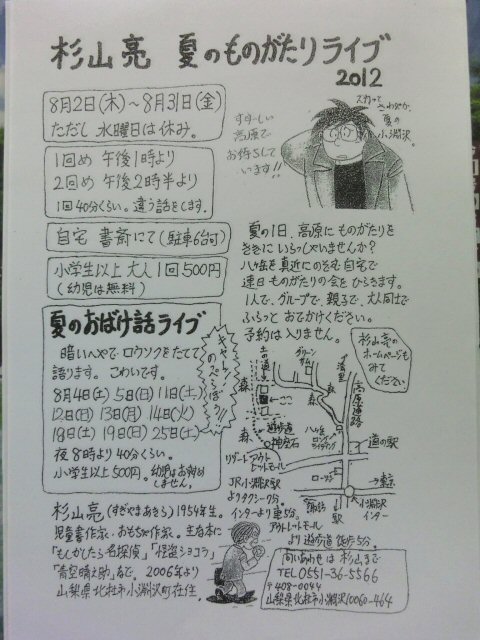 杉山亮 夏のものがたりライブ
2012
8月2日(木)~8月31日(金)
ただし 水曜日は休み。
1回め 午後1時より
2回め 午後2時半より
1回40分くらい。違う話をします。
自宅 書斎にて(駐車6台可)
小学生以上 大人 1回500円
(幼児は無料)
すずしい
高原で
お待ちして
います!!
さわやか、
夏の
小淵沢。
夏の1日、高原に ものがたりを
ききに いらっしゃいませんか?
八ヶ岳を真近にのぞむ自宅で
連日 ものがたりの会を ひらきます。
1人で、グループで、親子で、大人同士で
ふらっと おでかけください。
予約は入りません。
夏のおばけ話ライブ
暗いへやで ロウソクをたてて
語ります。こわいです。
8月4日(土)5日(日)11日(土)
12日(日)13日(月)14日(火)
18日(土)19日(日)25日(土)
夜8時より40分くらい。
小学生以上500円。幼児はお勧め
しません。
キャー!
のっぺらぼう!
杉山亮の
ホームページも
みて
ください
森
森
森
森
ここ
遊歩道
神宮石
リゾートアウト
レットモール
八ヶ岳
高原道路
道の駅
ローソン
東京
諏訪
駅
小淵沢
インター
JR小淵沢駅
よりタクシー7分。
インターより車5分。
アウトレットモール
より遊歩道 徒歩5分。
杉山亮(すぎやまあきら)1954年生。
児童書作家・おもちゃ作家。主な本に
「もしかしたら名探偵」「怪盗ショコラ」
「青空晴之助」など。2006年より
山梨県北杜市小淵沢町在住。
問いあわせは 杉山まで
TEL 0551-36-5566
〒408-0044
山梨県北杜市小淵沢10060-464